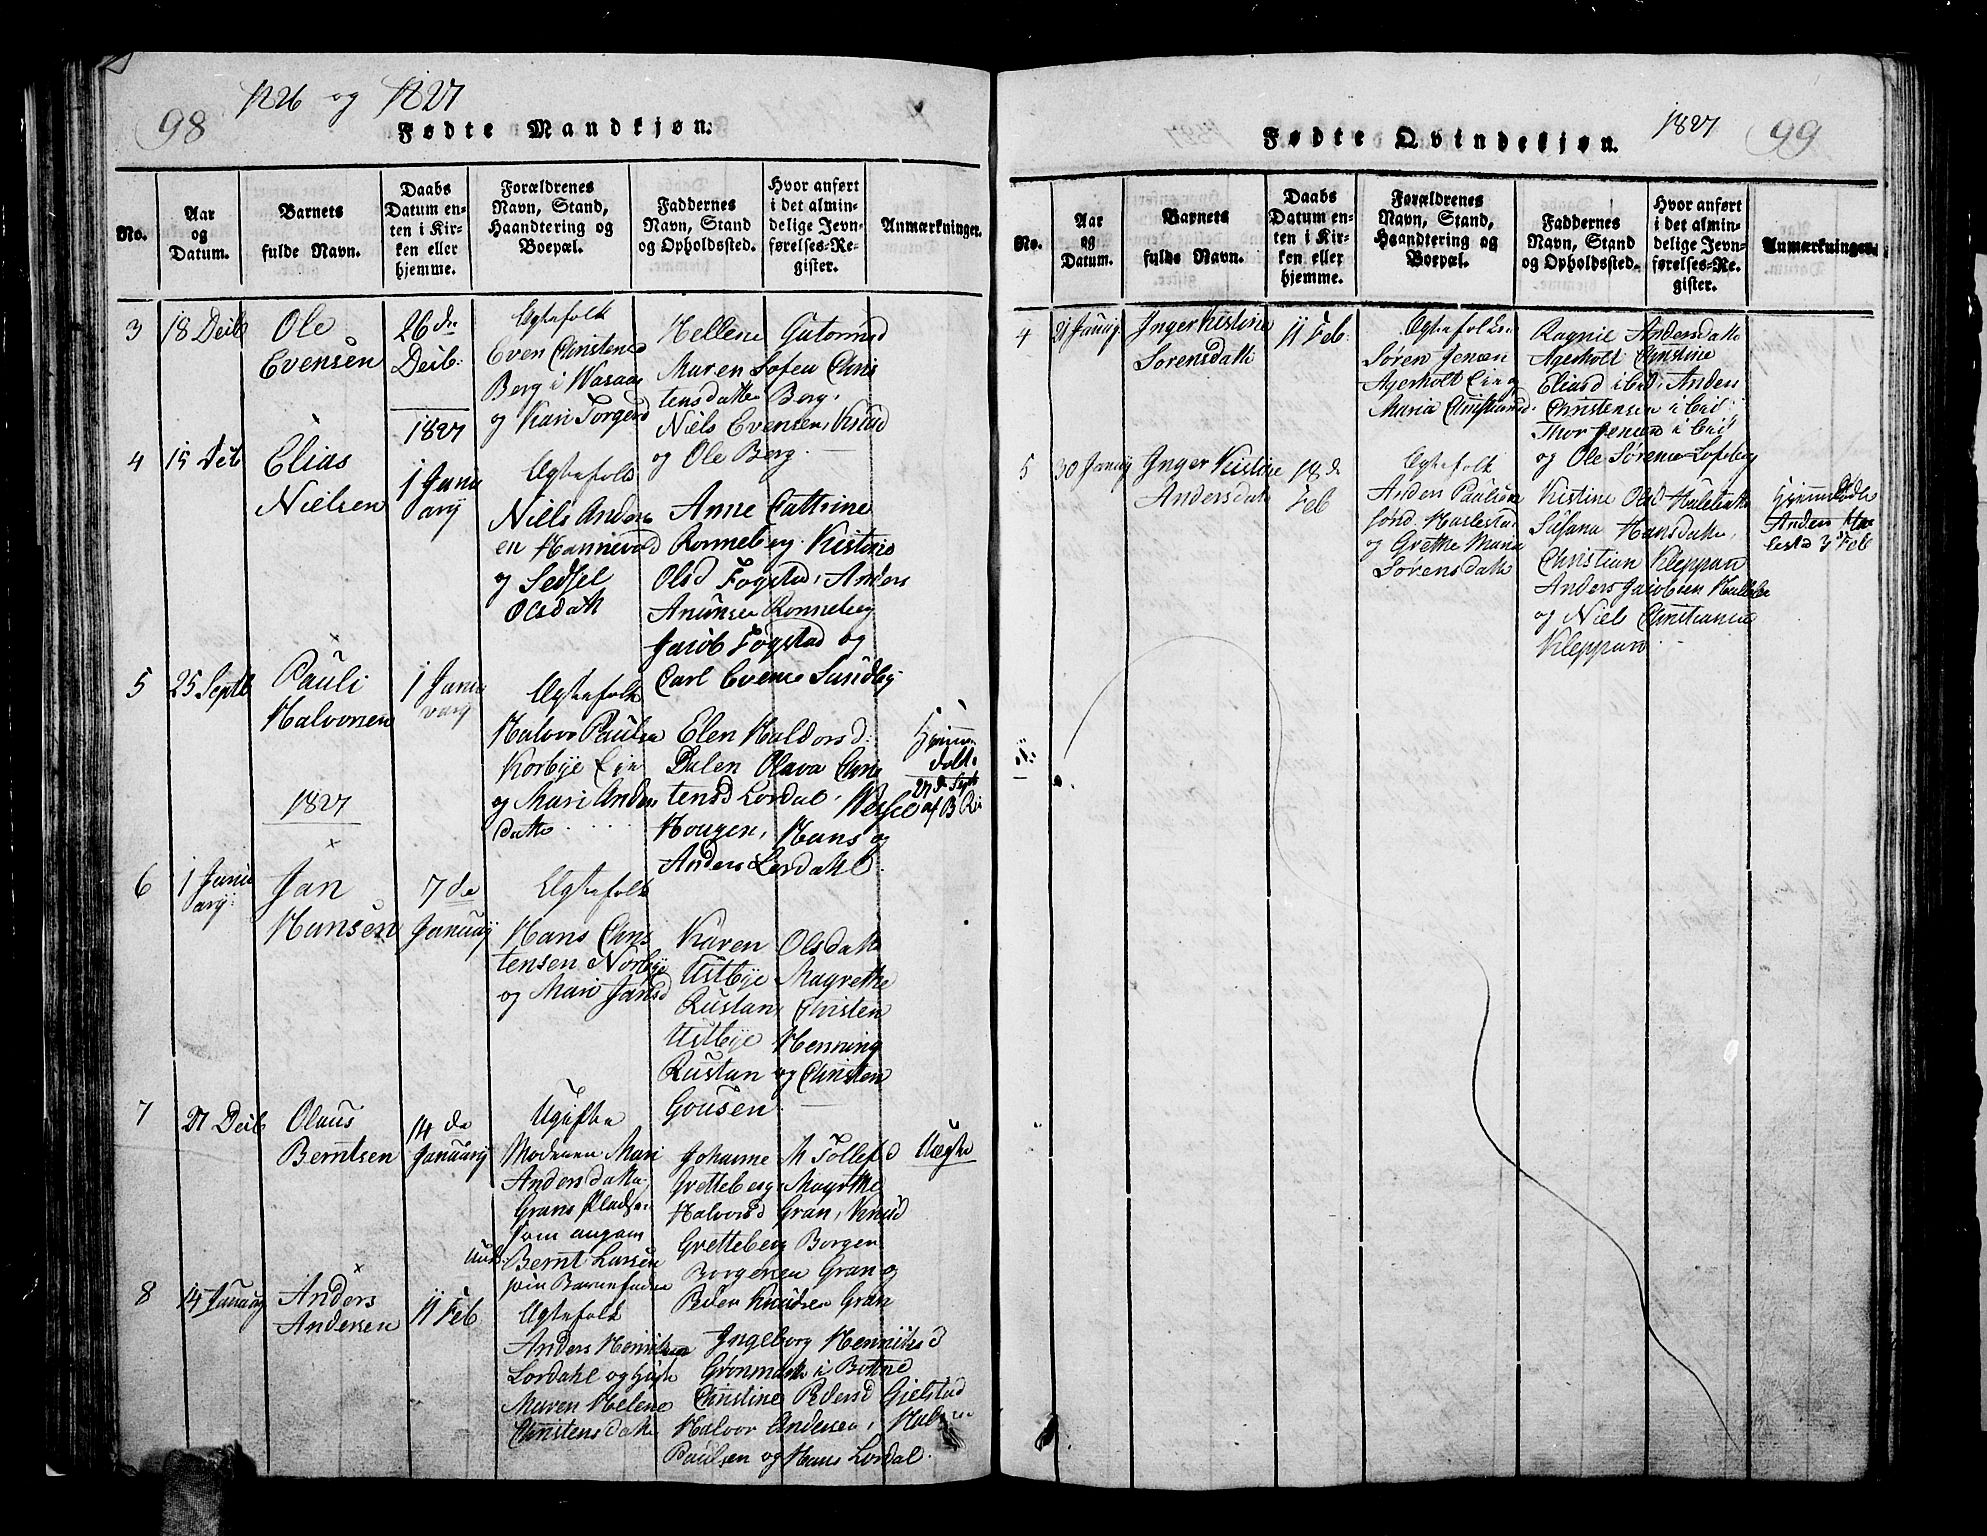 98
1826 og 1827
Fødte Mandkjøn.
No.
Aar
og
Datum.
Barnets
fulde Navn.
Daabs
Datum en-
ten i Kir-
ken eller
hjemme.
Forældrenes
Navn, Stand,
Haandtering og
Boepæl.
Faddernes
Navn, Stand
og Opholdssted.
Hvor anført
i det almin-
delige Jevn-
førelses-Re-
gister.
Anmærkninger.
3
18 Decb
Ole
Evensen
26 de
Decb:
Egtefolk
Even Christens
Berg i Wasaas
og Kari Torgers
Hellene Gutormsd
Maren Sofea Chris
tensdatter Berg,
Niels Evensen, Knud
og Ole Berg.
1827
4
15 Deb
Elias
Nielsen
1 Janu
arij
Egtefolk
Niels Anders
en Hannevold
og Sedsel
Olsdatt
Anne Cattrine
Ronneberg Kistine
Olsd Fogstad, Anders
Anunsen Ronneberg
Jacob Fogstad og
Carl Evens Sundby
5
25 Septb
Pauli
Halvorsen
1 Janu
varij
Egtefolk
Halvor Paulsen
Korbye Eie
og Mari Anders
datter
Elen Haldorsd:
Dalen Olava Chris
tensd Lordal,
Hougen, Hans og
Anders Lordahl
Hjemme
døbt
27 d Sept
af B
1827
6
1 Janu
arij:
Jan
Hansen
7 de
Januarij
Egtefolk
Hans Chris
tensen Nørbye
og Mari Jansd
Karen Olsdatt
Ustbye Magrethe
Rustan, Christen
Ustbye Henning
Rustan og Christen
Gousen
7
27 Decb
Olaus
Berntsen
14 de
Januarij
Ugifte
Moderen Mari
Andersdatter
Grans Pladse
som angam
Bernt Larsen
som Barnefader
Johanne M Tollefsd
Gretteberg Magrethe
Halvorsd Gran, Knud
Gretteberg Borgen
Borgersen Gran og
Peder Knudsen Gran
Uægte
8
14 Januarij
Anders
Andersen
11 Feb
Egtefolk
Anders Henriksen
Lordahl og
Maren Helene
Christensdatter
Ingeborg Henriksd
Grønmark i Botne
Christine Pedersd Gielstad
Halvor Andersen,
Paulsen og Hans Lordal.
Fødte Qvindekjøn.
1827
99
No.
Aar
og
Datum.
Barnets
fulde Navn.
Daabs
Datum en-
ten i Kir-
ken eller
hjemme.
Forældrenes
Navn, Stand,
Haandtering og
Boepæl.
Faddernes
Navn, Stand
og Opholdssted.
Hvor anført
i det almin-
delige Jevn-
førelses-Re-
gister.
Anmærkninger.
4
21 Januarij
Inger Kistine
Sorensdatt
11 Feb:
Egtefolk
Søren Jensen
Agerholt Eie og
Maria Christiansd
Ragnil Andersdatt
Agerholt Christine
Eliasd ibid, Anders
Christensen ibid,
Thor Jensen ibid
og Ole Sørensen Lofsberg
5
30 Januarij
Inger Kistine
Andersdatt
18 d
Feb
Egtefolk
Anders Paulsen
Haslestad
og Grethe Maria
Sørensdatt
Kistine Olsd
Susana Hansdatter
Christian Kleppan
Anders Jacobsen
og Niels Christiansen
Kleppan
Hjemmedøbt
Anders Ha
lestad 3 Feb